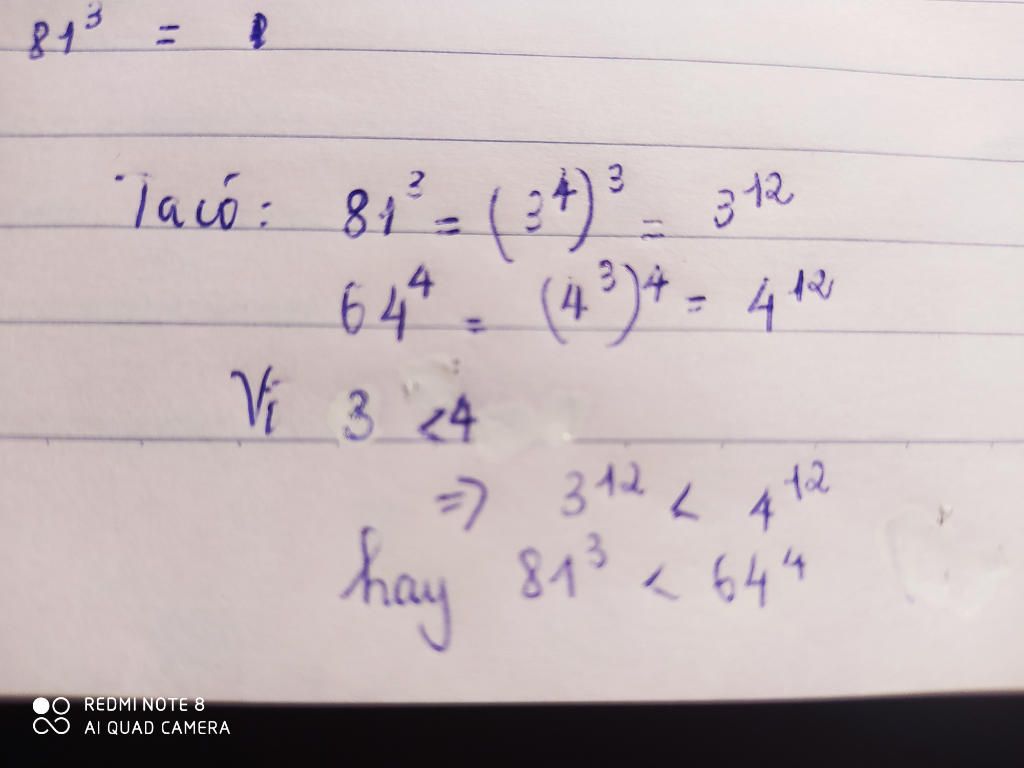 81³ =
Ta có: 81³ = (3⁴)³ = 3¹²
64⁴ = (4³)⁴ = 4¹²
Vì 3 < 4
=> 3¹² < 4¹²
hay 81³ < 64⁴
REDMI NOTE 8
AI QUAD CAMERA